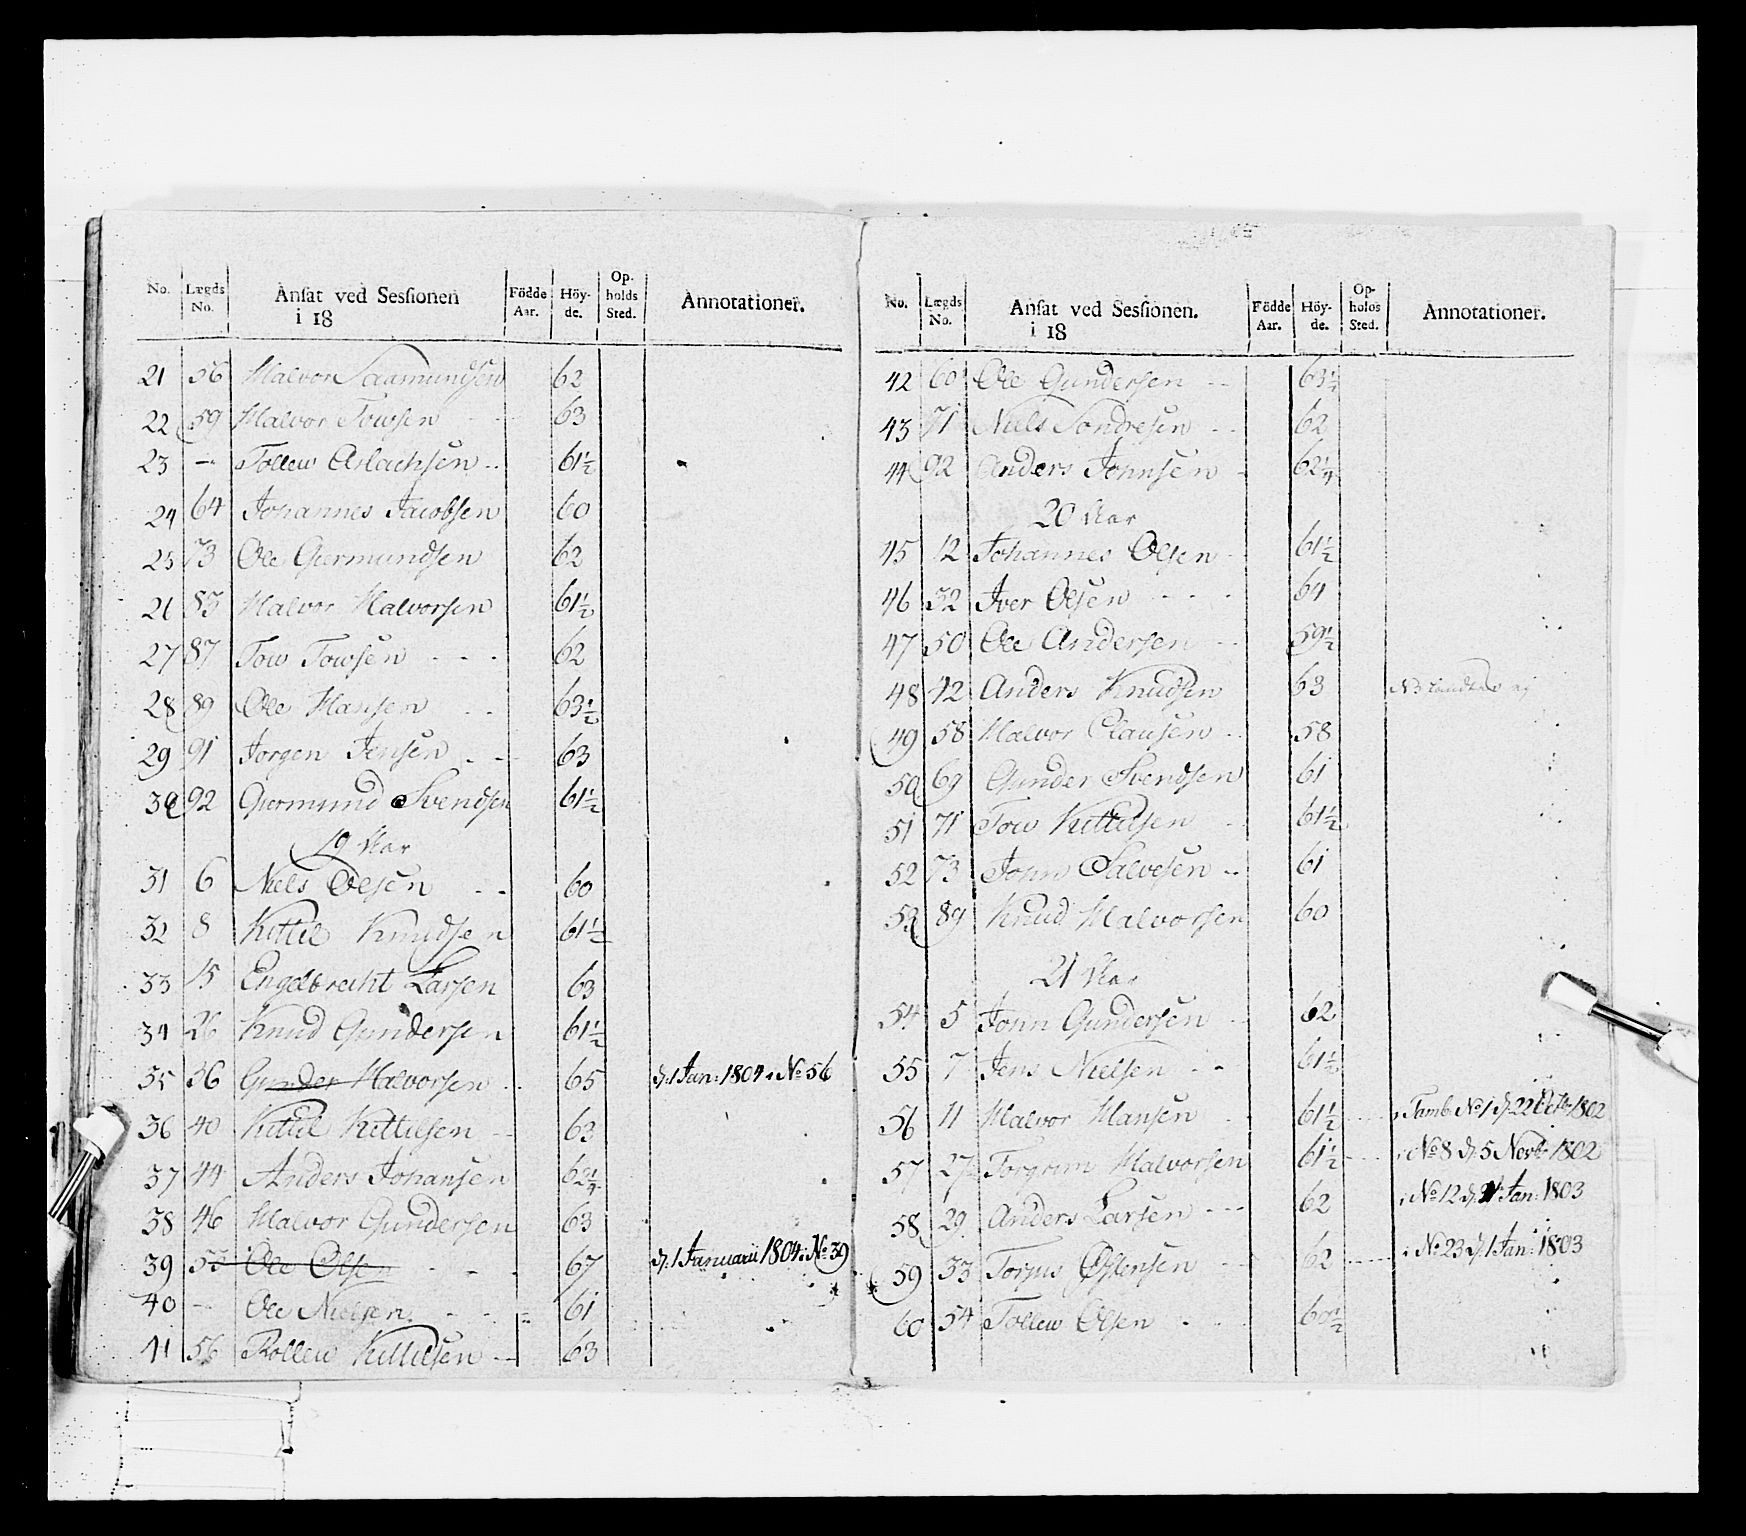 No. Lægds No. Ansat ved Sessionen i 18 Födde Aar. Höyde. Opholds Sted. Annotationer.
21 56 Halvor Saamundsen 62
22 59 Halvor Towsen 63
23 — Tollew Aslachsen 61½
24 64 Johannes Jacobsen 60
25 73 Ole Giermundsen 62
26 83 Halvor Halvorsen 61½
27 87 Tow Towsen 62
28 89 Ole Hansen 63½
29 91 Jorgen Jensen 63
30 92 Giermund Svendsen 61½
19 Aar
31 6 Niels Olsen 60
32 8 Kittil Knudsen 61½
33 15 Engelbrecht Larsen 63
34 26 Knud Gundersen 61½
35 36 Gunder Halvorsen 65 d. 1 Jan: 1804 i No 56
36 40 Kittil Kittilsen 63
37 44 Anders Johansen 62¼
38 46 Halvor Gundersen 63
39 53 Ole Olsen 67 d. 1 Januarii 1804 i No 39
40 — Ole Nielsen 61
41 56 Rollew Kittilsen 63
No. Lægds No. Ansat ved Sessionen. i 18 Födde Aar. Höyde. Opholds Sted. Annotationer.
42 60 Ole Gundersen 63½
43 71 Niels Sondresen 62
44 92 Anders Johnsen 62¼
20 Aar
45 12 Johannes Olsen 61½
46 32 Iver Olsen 64
47 50 Ole Andersen 59½
48 42 Anders Knudsen 63
49 58 Halvor Clausen 58
50 69 Gunder Svendsen 61
51 71 Tow Kittilsen 61½
52 73 John Salvesen 61
53 89 Knud Halvorsen 60
21 Aar
54 5 John Gundersen 62
55 7 Jens Nielsen 61½
56 11 Halvor Hansen 61½ i Tamb. No 1 d. 22 Octb 1802
57 27 Torgrim Halvorsen 61½ i No 8 d. 5 Novb 1802
58 29 Anders Larsen 62 i No 12 d. 1 Jan: 1803
59 33 Torjus Østensen 62 i No 23 d. 1 Jan: 1803
60 54 Tollew Olsen 60½